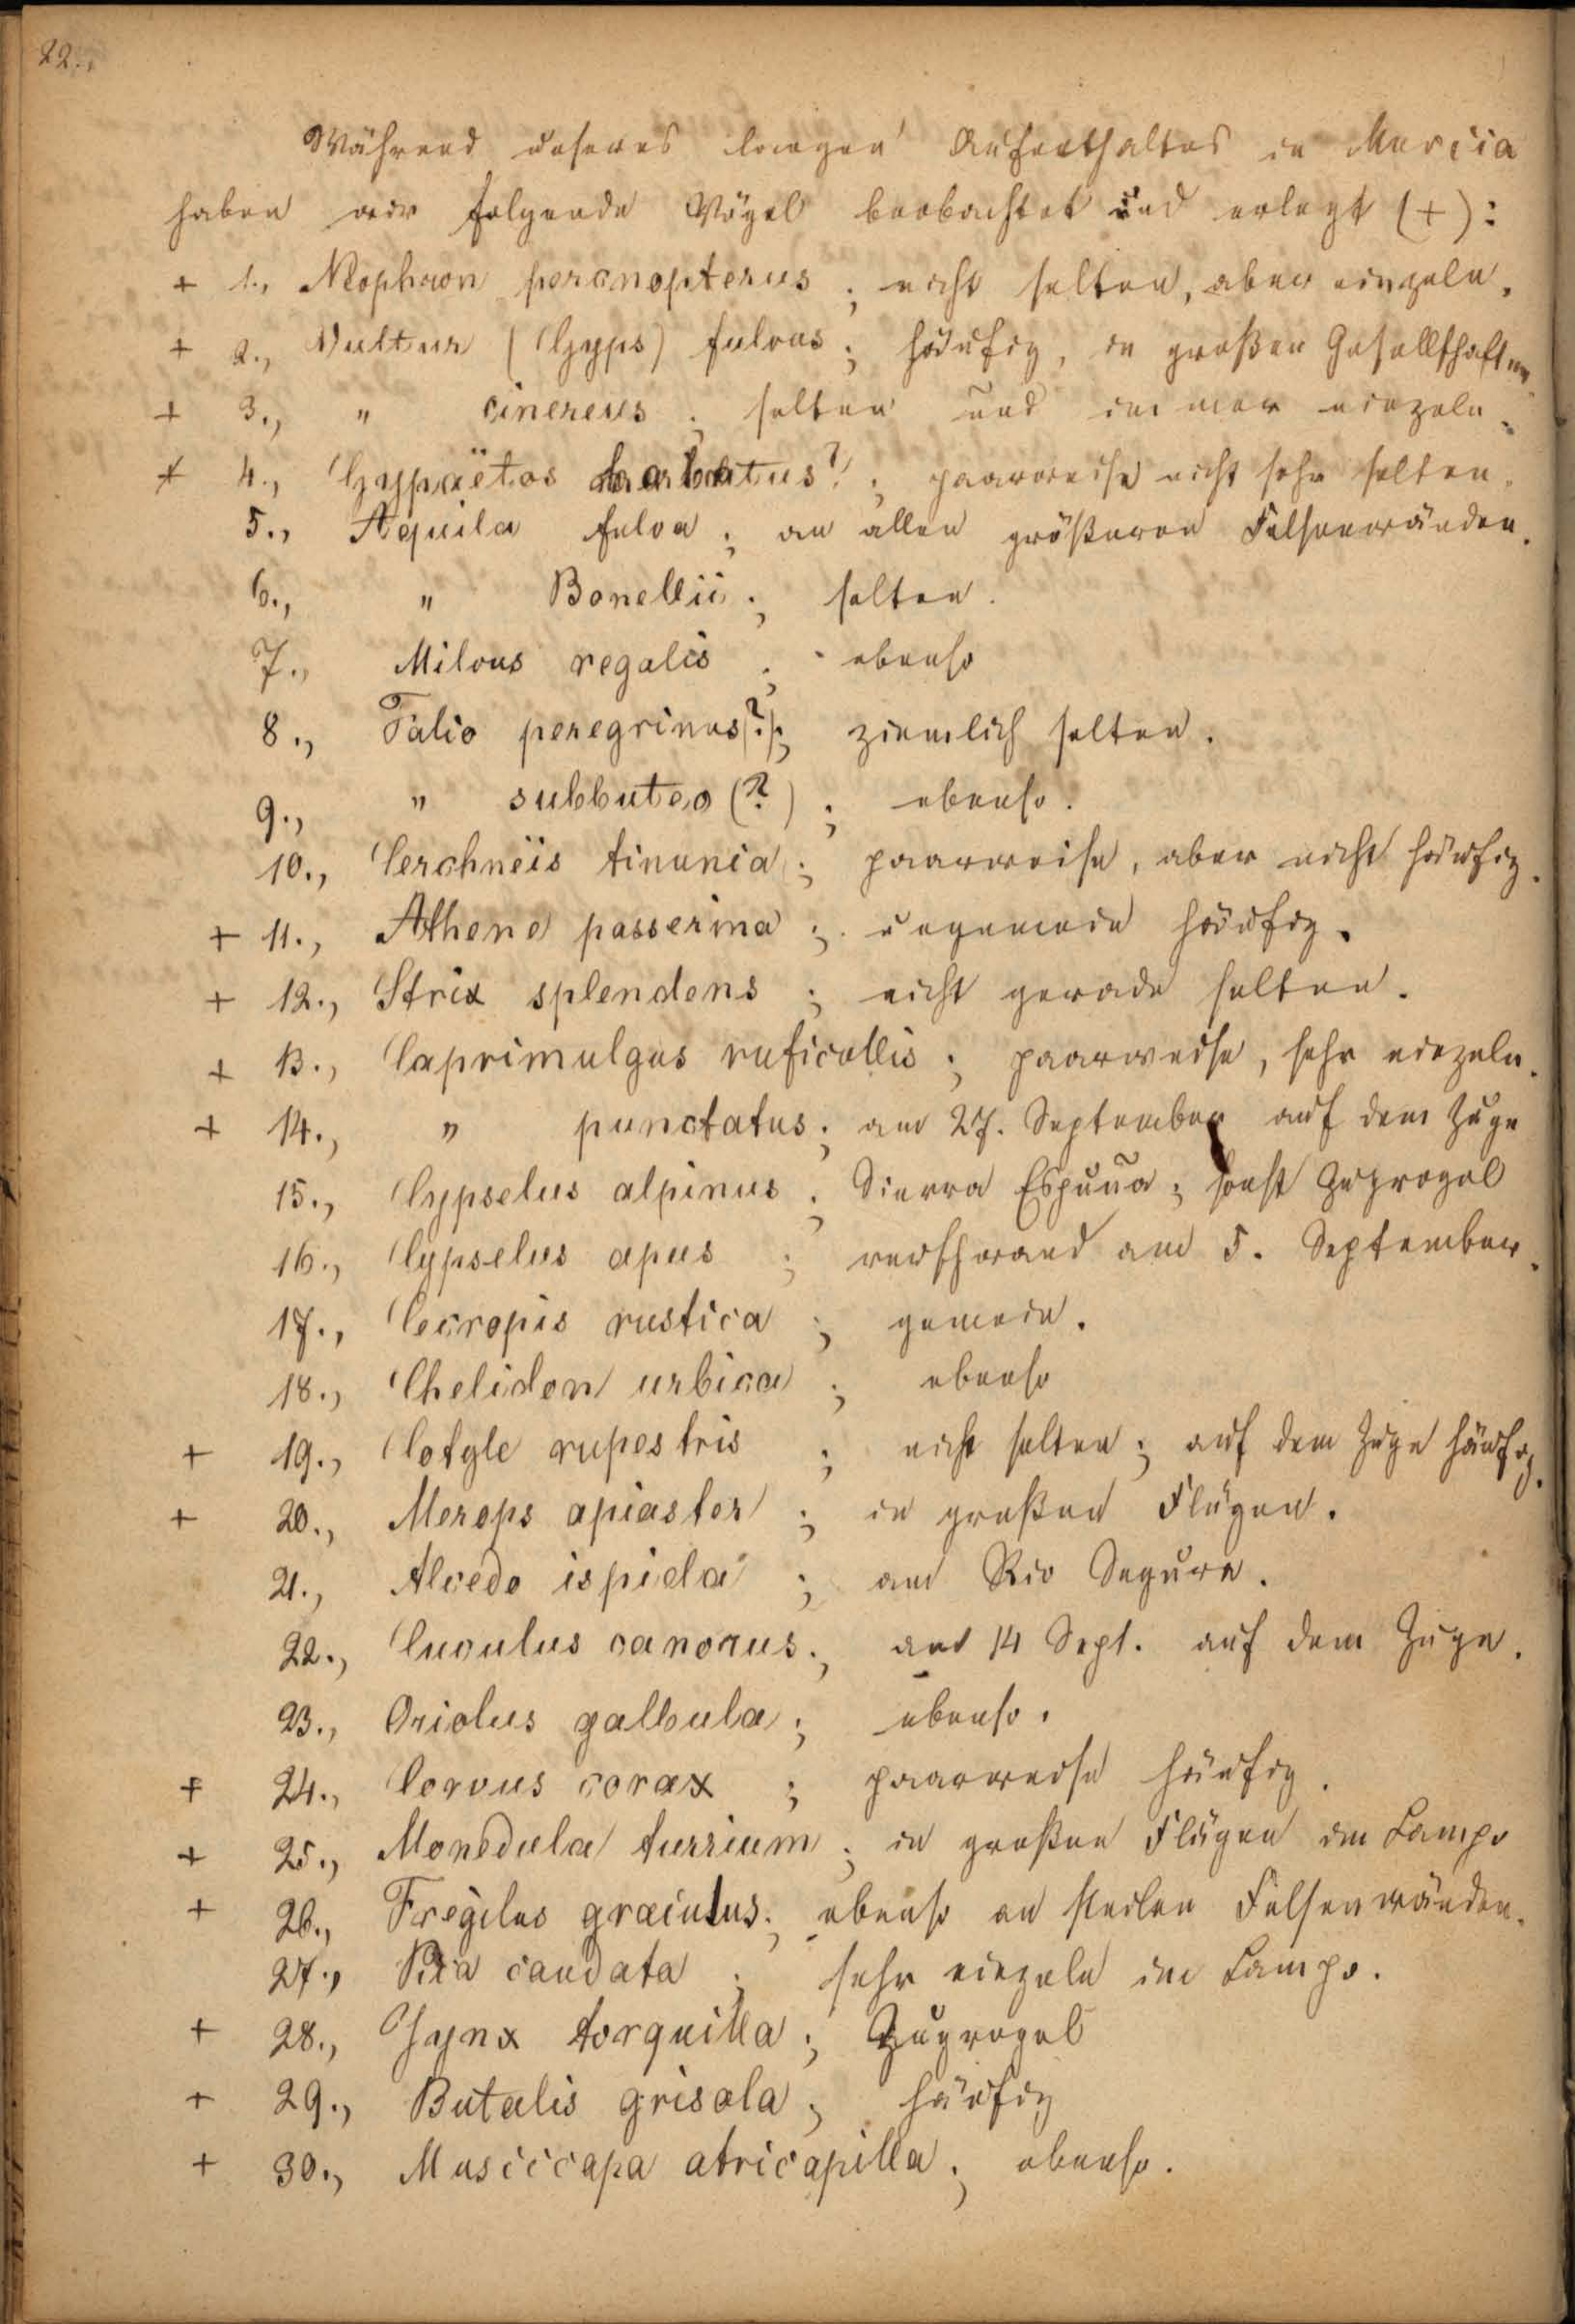 22.,
Während unseres langen Aufenthaltes in Murcia
haben wir folgende Vögel beobachtet und erlegt (+):
+ 1., Neophron percnopterus ; nicht selten, aber einzeln.
+ 2., Vultur (Gyps) fulvus ; häufig, in großen Gesellschaften
+ 3., " cinereus ; selten und immer einzeln.
+ 4., Gypaëtos barbatus? ; paarweise nicht sehr selten.
5., Aquila fulva ; an allen größeren Felsenwänden.
6., " Bonellii ; selten.
7., Milvus regalis ; ebenso
8., Falco peregrinus(?) ; ziemlich selten.
9., " subbuteo (?) ; ebenso.
10., Cerchnëis tinuncia ; paarweise, aber nicht häufig.
+ 11., Athene passerina ; ungemein häufig.
+ 12., Strix splendens ; nicht gerade selten.
+ 13., Caprimulgus ruficollis ; paarweise, sehr einzeln.
+ 14., " punctatus ; am 27. September auf dem Zuge
15., Cypselus alpinus ; Sierra Espuña ; sonst Zugvogel
16., Cypselus apus ; verschwand am 5. September.
17., Cecropis rustica ; gemein.
18., Chelidon urbica ; ebenso
+ 19., Cotyle rupestris ; nicht selten ; auf dem Zuge häufig.
+ 20., Merops apiaster ; in großen Flügen.
21., Alcedo ispida ; am Rio Segura.
22., Cuculus canorus ; am 14 Sept. auf dem Zuge.
23., Oriolus galbula ; ebenso.
+ 24., Corvus corax ; paarweise häufig.
+ 25., Monedula turrium ; in großen Flügen im Campo
+ 26., Fregilus graculus ; ebenso an steilen Felsenwänden.
27., Pica caudata ; sehr einzeln im Campo.
+ 28., Jynx torquilla ; Zugvogel
+ 29., Butalis grisola ; häufig
+ 30., Muscicapa atricapilla ; ebenso.